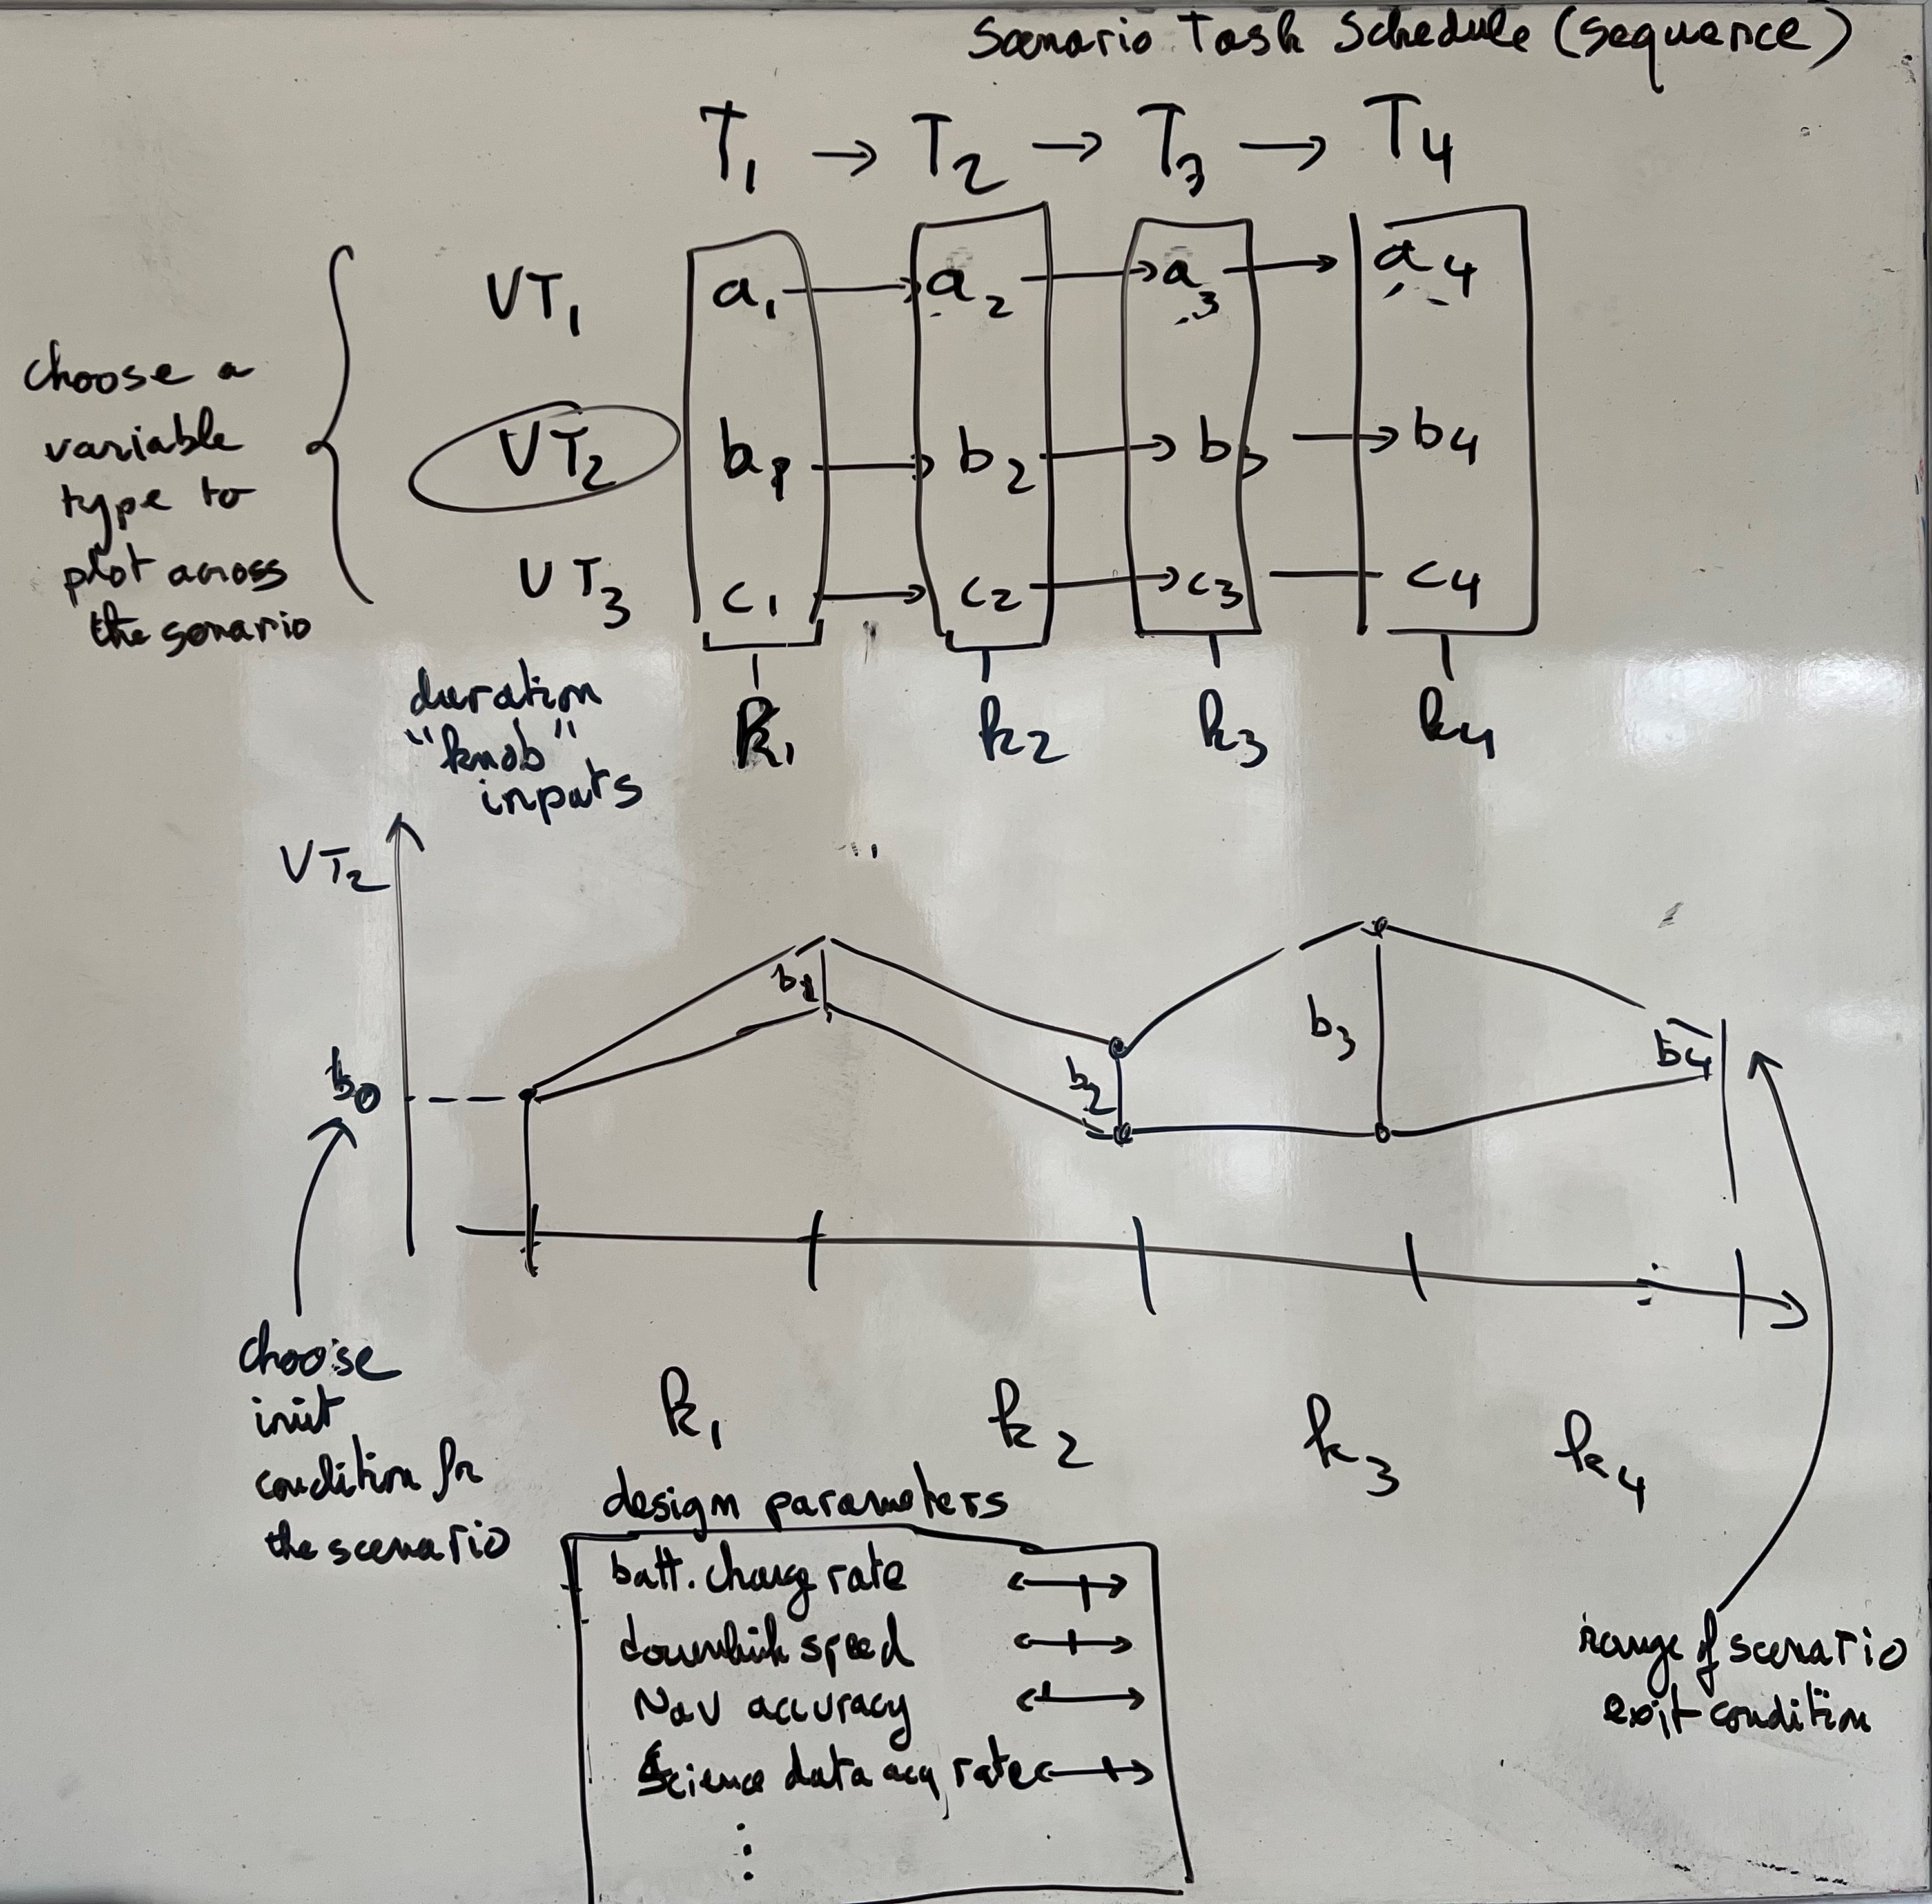 Scenario Task Schedule (sequence)
T1 → T2 → T3 → T4
VT1 a1 → a2 → a3 → a4
choose a
variable
type to
plot across
the senario
VT2 b1 → b2 → b3 → b4
VT3 c1 → c2 → c3 — c4
duration
"knob"
inputs
k1 k2 k3 k4
VT2
b0 b1 b2 b3 b4
choose
init
condition for
the scenario
k1 k2 k3 k4
design parameters
batt. charg rate
downlink speed
Nav accuracy
Science data acq rate
range of scenario
exit condition